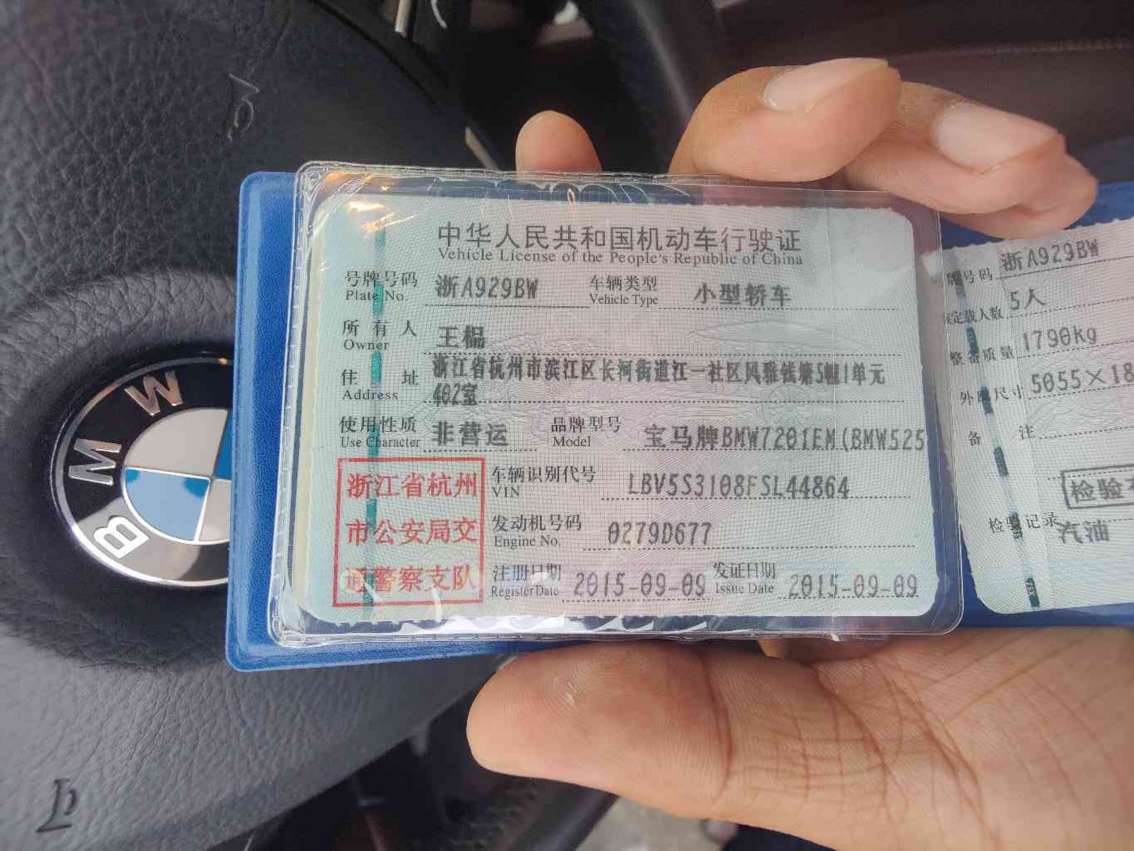 BMW
中华人民共和国机动车行驶证
Vehicle License of the People's Republic of China
号牌号码 浙A929BW 车辆类型 小型轿车
Plate No. Vehicle Type
所有人 王榅
Owner
住址 浙江省杭州市滨江区长河街道江一社区风雅钱塘5幢1单元
Address 402室
使用性质 非营运 品牌型号 宝马牌BMW7201EM(BMW525
Use Character Model
浙江省杭州 车辆识别代号 LBV5S3108FSL44864
VIN
市公安局交 发动机号码 0279D677
Engine No.
通警察支队 注册日期 2015-09-09 发证日期 2015-09-09
Register Date Issue Date
牌号码 浙A929BW
定载人数 5人
整 质量 1790kg
外 尺寸 5055×18
备注
检验
检验记录 汽油